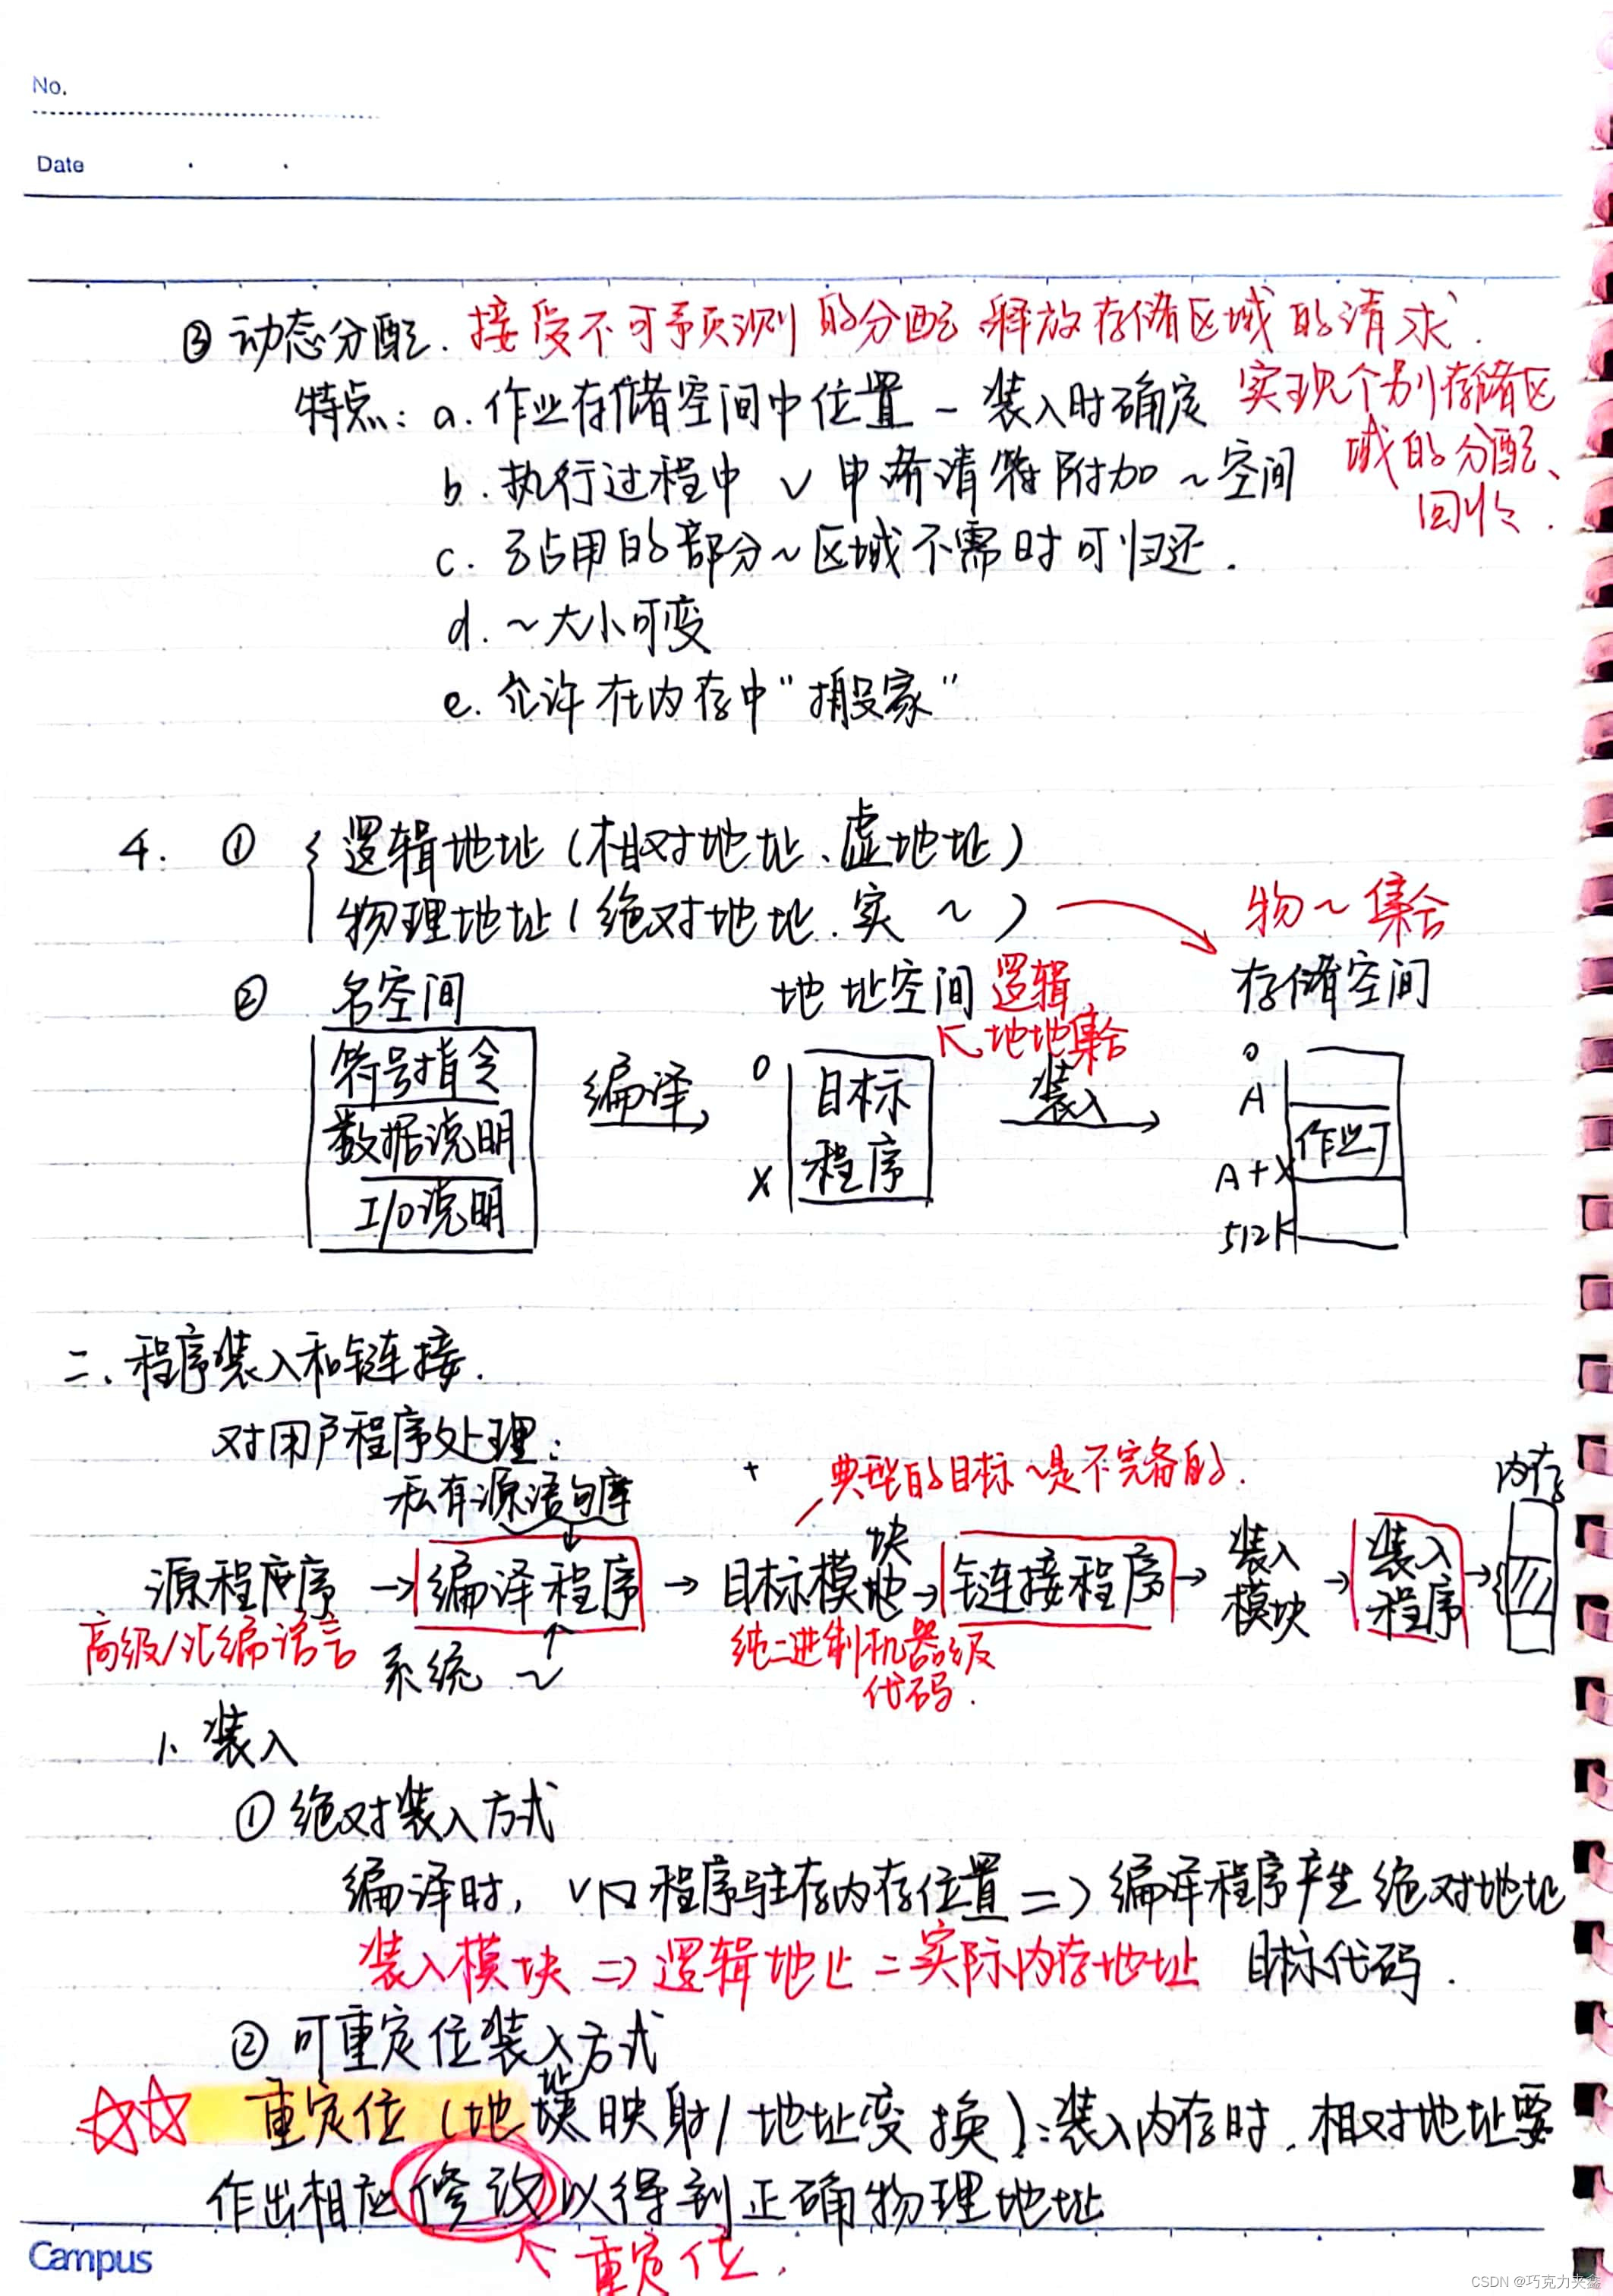 No.
Date
③ 动态分配. 接受不可予页测的分配、释放存储区域的请求.
特点: a. 作业存储空间中位置 - 装入时确定 实现个别存储区
b. 执行过程中 ∨ 申请 附加 ~ 空间 域的分配、
回收.
c. 占用的部分~区域不需时可归还.
d. ~大小可变
e. 允许在内存中"搬家"
4. ① { 逻辑地址 (相对地址、虚地址)
物理地址 (绝对地址. 实 ~) → 物~集合
② 名空间 地址空间 逻辑 存储空间
地地集合
符号指令 编译 0 目标 装入 0
A
数据说明 程序 作业J
X A+X
I/O说明 512K
二. 程序装入和链接.
对用户程序处理:
私有源语句库 典型的目标~是不完备的. 内存
源程序 → 编译程序 → 目标模块 → 链接程序 → 装入模块 → 装入程序 →
高级/汇编语言 系统 ~ 纯二进制机器级
代码.
1. 装入
① 绝对装入方式
编译时, 程序驻存内存位置 => 编译程序产生绝对地址
装入模块 => 逻辑地址 = 实际内存地址 目标代码.
② 可重定位装入方式
☆☆ 重定位 (地址映射/地址变换): 装入内存时. 相对地址要
作出相应修改以得到正确物理地址
↖ 重定位.
Campus
CSDN @巧克力夹鑫